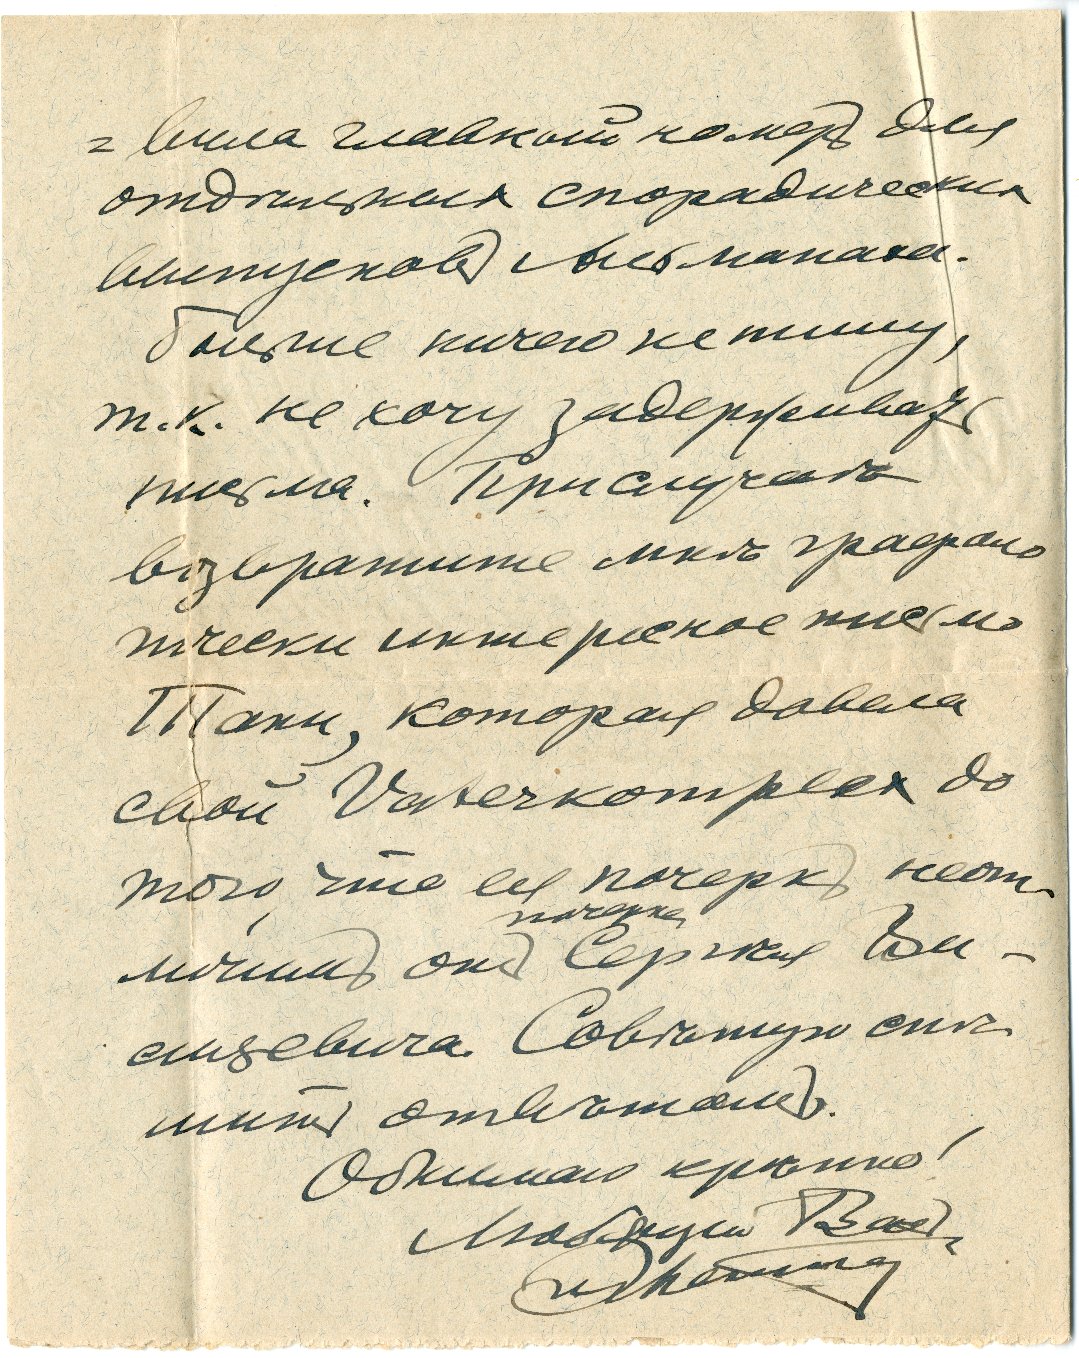 = вила главный номеръ для
отдѣльныхъ спорадическихъ
выпусковъ Альманаха.
Больше ничего не пишу,
т.к. не хочу задерживать
письма. При случаѣ
возвратите мнѣ графоло
гически интересное письмо
Тани, которая довела
свой Vaterkomplex до
того, что ея почеркъ неот-
личимъ отъ почерка Сергѣя Ви-
сковича. Совѣтую спѣ
шить отвѣтомъ.
Обнимаю крѣпко!
Любящій Васъ